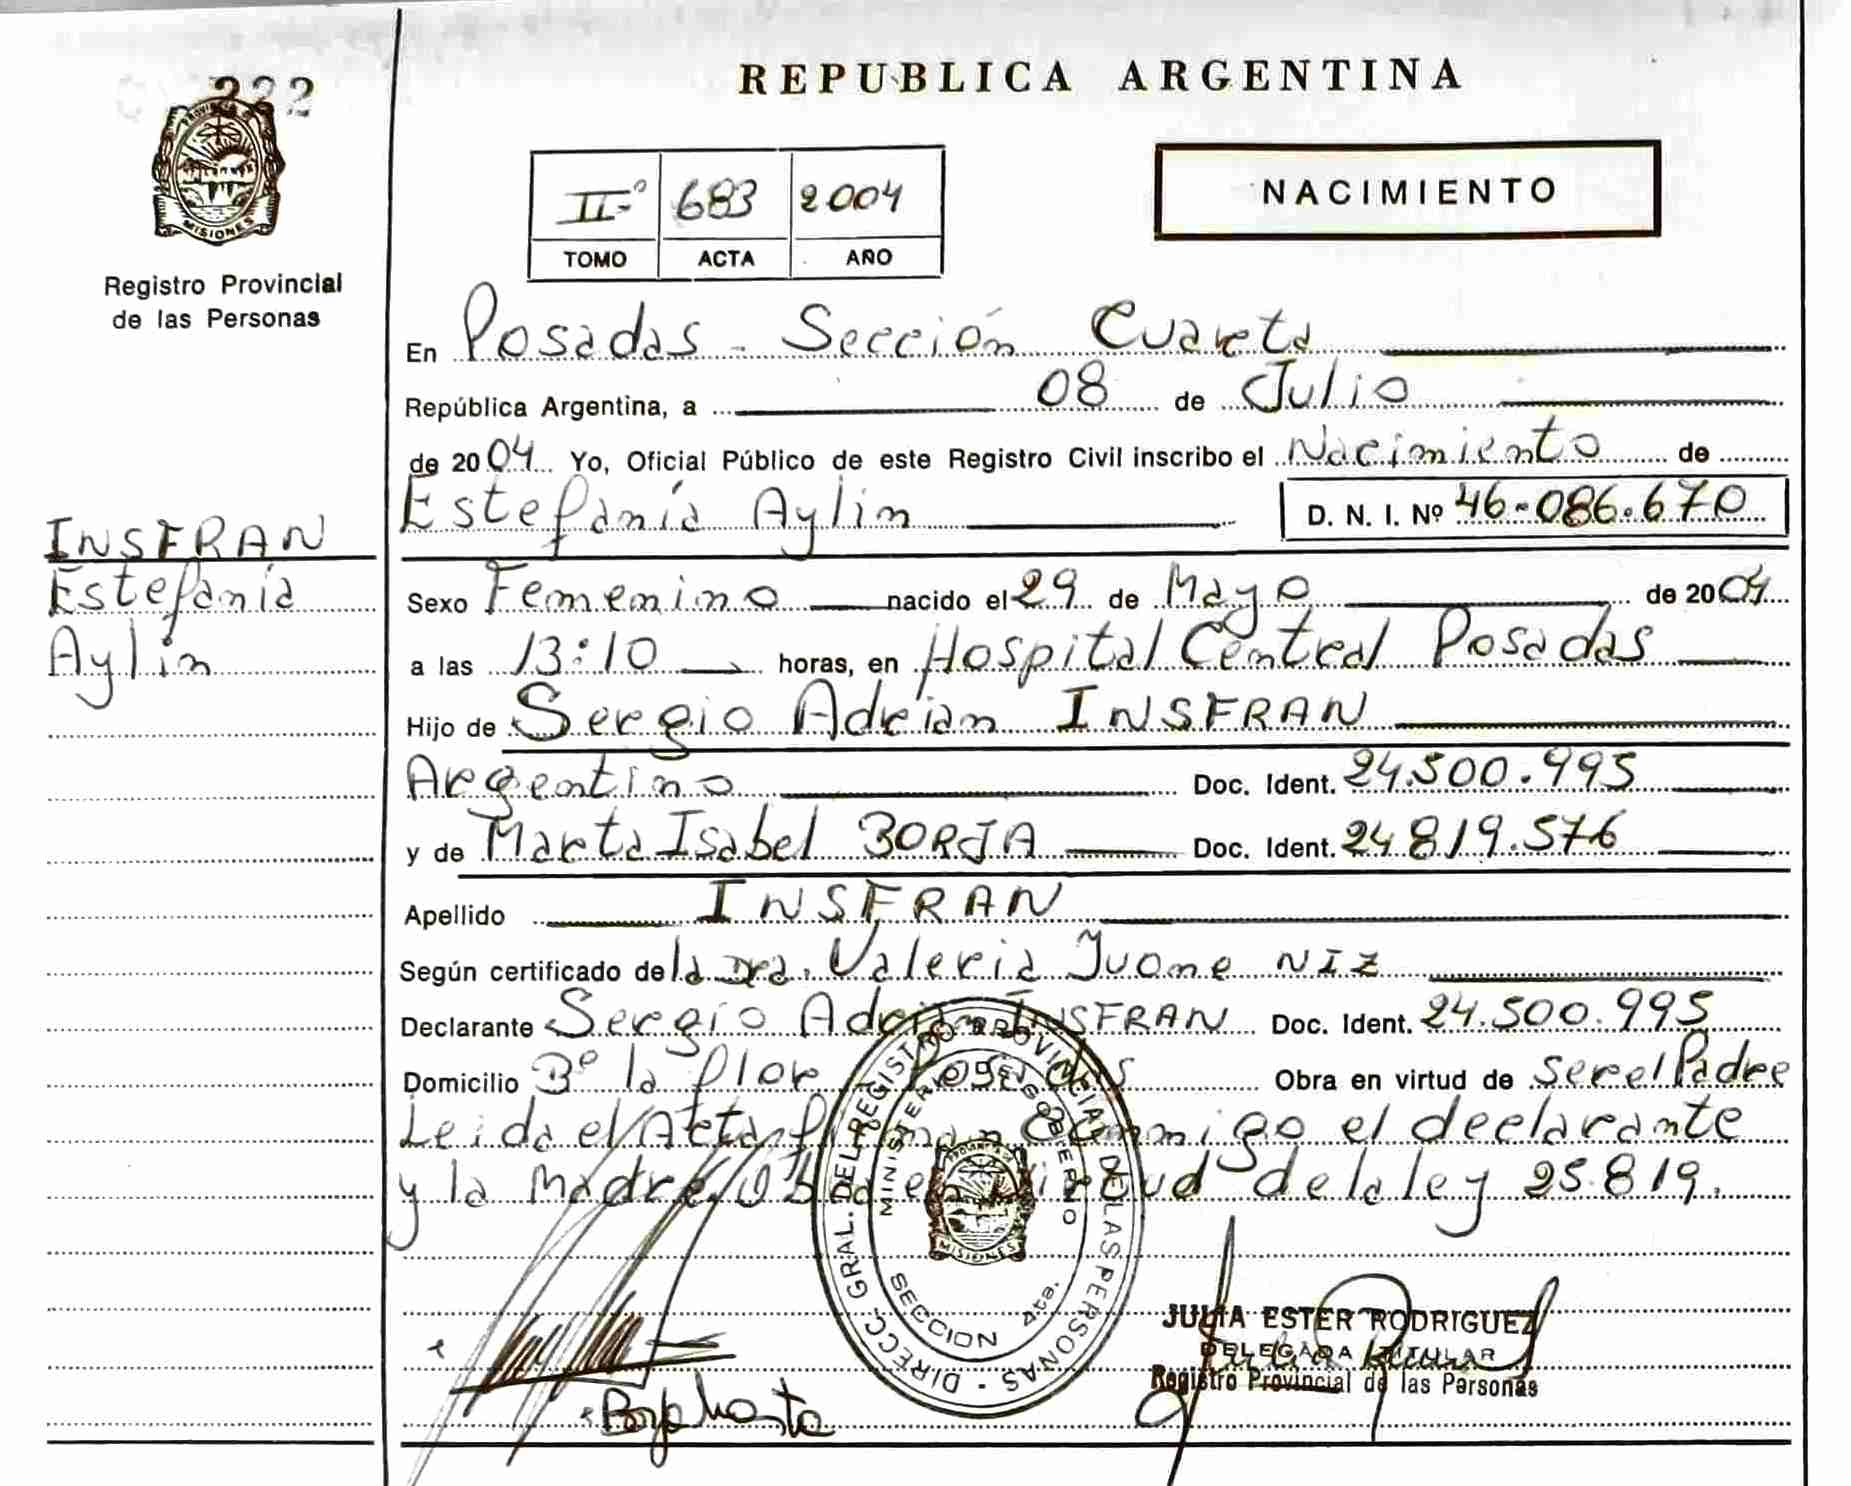 222
PROVINCIA DE
MISIONES
Registro Provincial
de las Personas
INSFRAN
Estefanía
Aylin
REPUBLICA ARGENTINA
II-º 683 2004
TOMO ACTA AÑO
NACIMIENTO
En Posadas - Sección Cuarta
República Argentina, a 08 de Julio
de 2004 Yo, Oficial Público de este Registro Civil inscribo el Nacimiento de
Estefanía Aylin D. N. I. Nº 46-086.670
Sexo Femenino nacido el 29 de Mayo de 2004
a las 13:10 horas, en Hospital Central Posadas
Hijo de Sergio Adrián INSFRAN
Argentino Doc. Ident. 24.500.995
y de Marta Isabel BORJA Doc. Ident. 24.819.576
Apellido INSFRAN
Según certificado de la Dra. Valeria Ivone NIZ
Declarante Sergio Adrián INSFRAN Doc. Ident. 24.500.995
Domicilio Bº la flor Posadas Obra en virtud de ser el Padre
Leida el Acta firman Conmigo el declarante
y la Madre Obra en virtud de la ley 25.819.
DIRECC. GRAL. DEL REGISTRO PROVINCIAL DE LAS PERSONAS -
MINISTERIO DE GOBIERNO
MISIONES
SECCION 4ta.
JULIA ESTER RODRIGUEZ
DELEGADA TITULAR
Registro Provincial de las Personas
Borja Marta